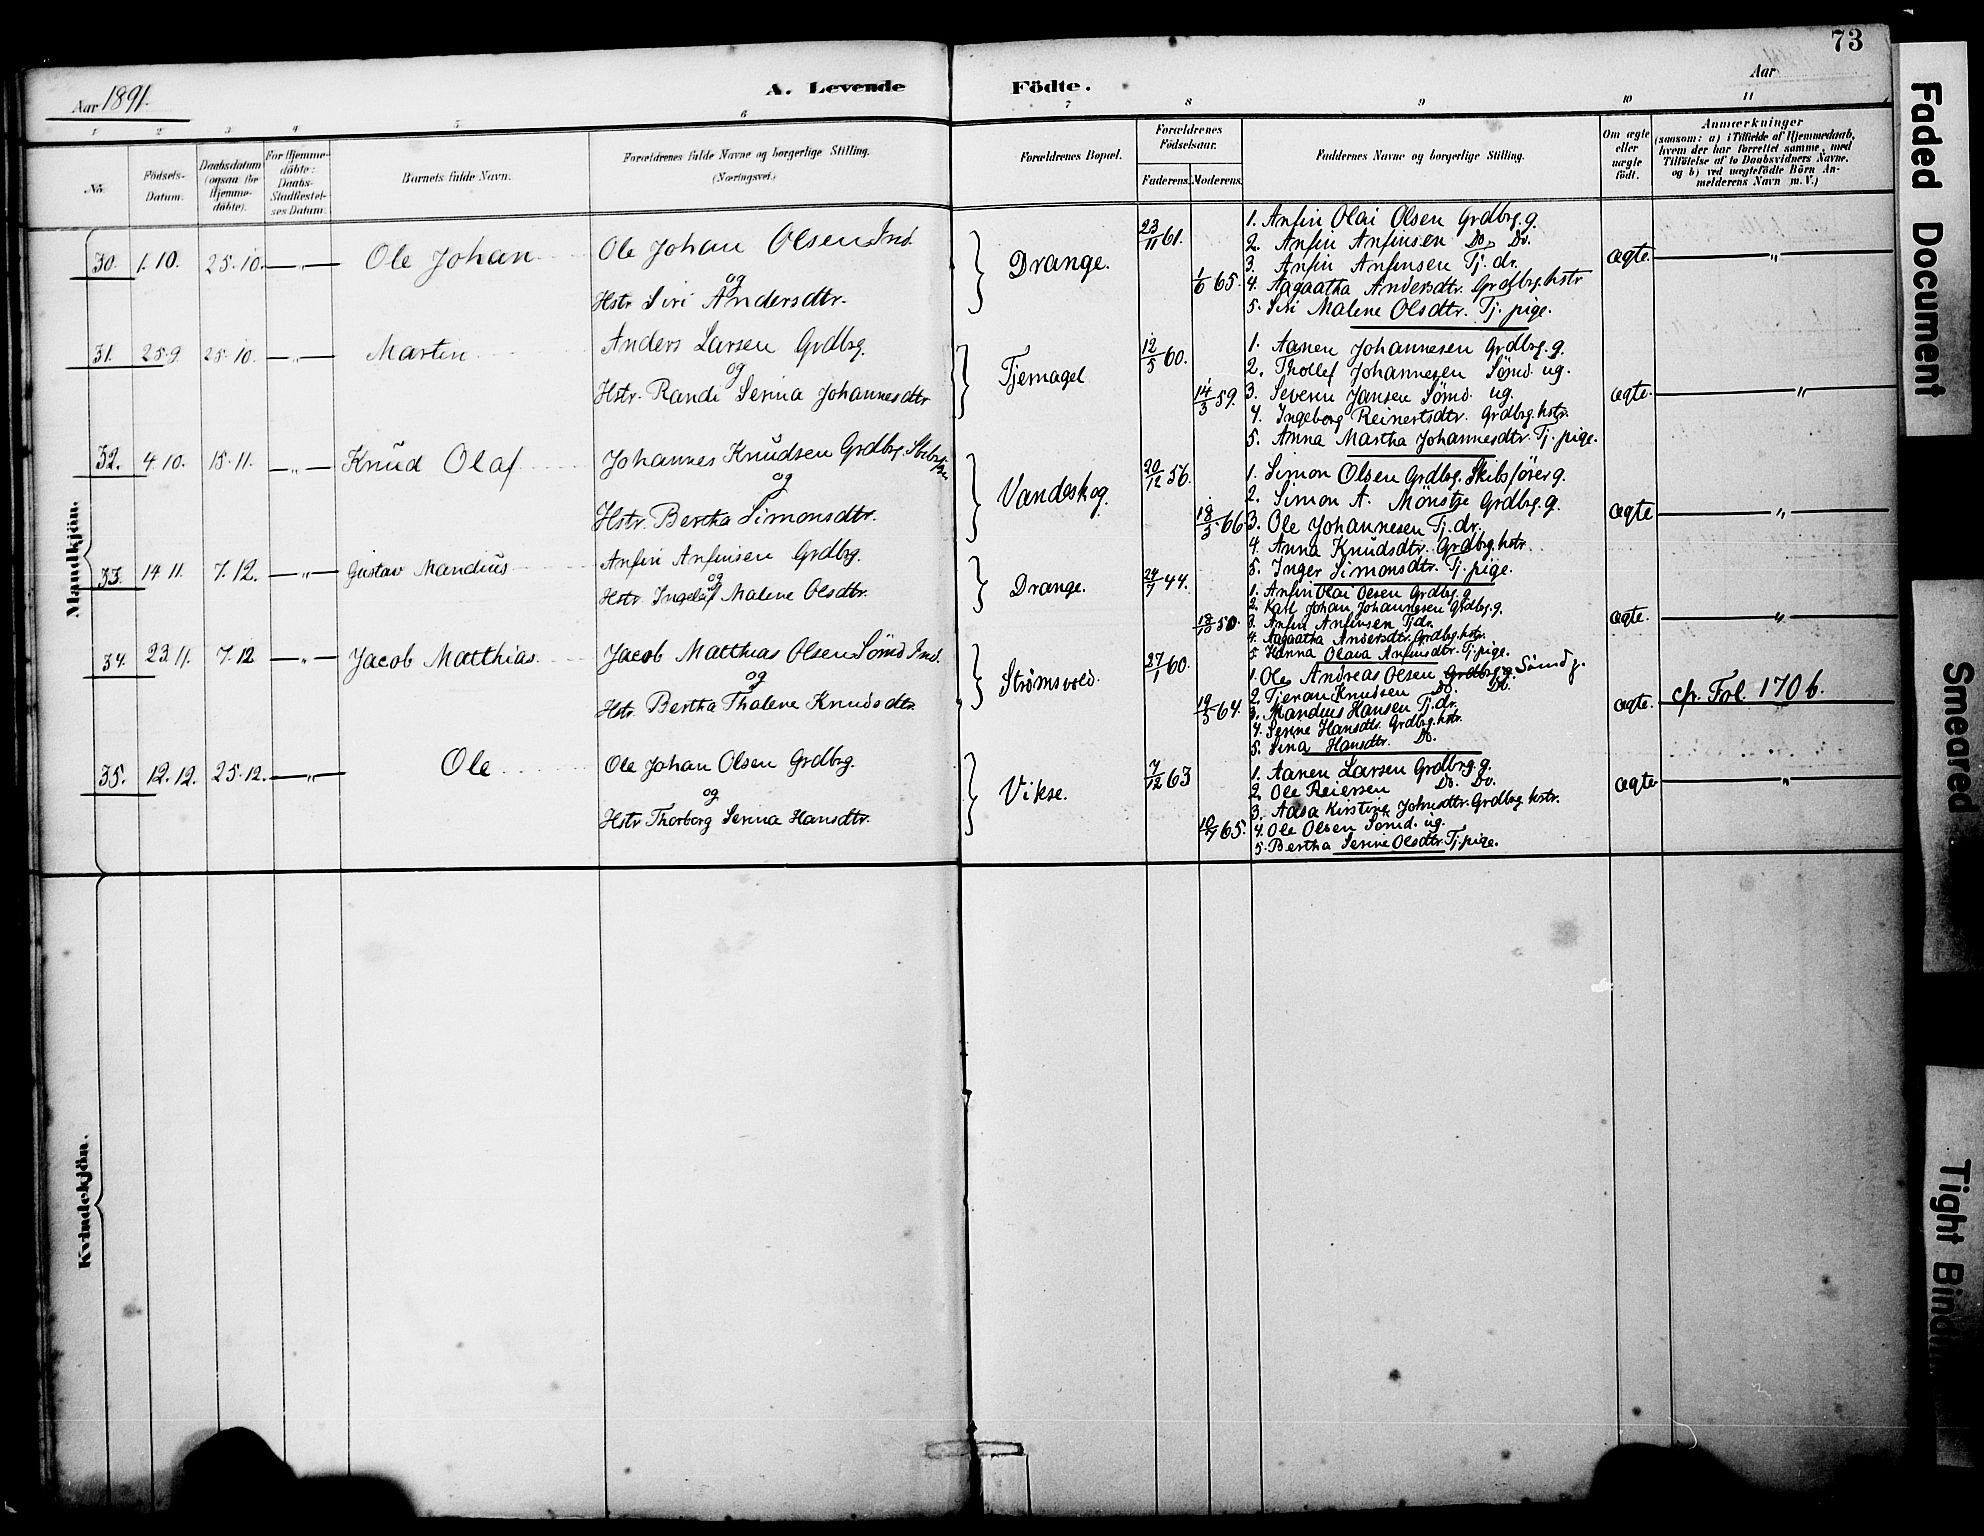 73
Aar 1891.
A. Levende Födte.
Aar
1 2 3 4 5 6 7 8 9 10 11
No.
Födsels-Datum.
Daabsdatum (ogsaa for Hjemme-döbte).
For Hjemme-döbte: Daabs-Stadfæstel-ses Datum.
Barnets fulde Navn.
Forældrenes fulde Navne og borgerlige Stilling. (Næringsvei.)
Forældrenes Bopæl.
Forældrenes Födselsaar.
Faderens. Moderens.
Faddernes Navne og borgerlige Stilling.
Om ægte eller uægte födt.
Anmærkninger
(saasom: a) i Tilfælde af Hjemmedaab,
hvem der har forrettet samme, med
Tilföielse af to Daabsvidners Navne.
og b) ved uægtefödte Börn An-
melderens Navn m. V.)
Mandkjön.
30. 1.10. 25.10. — " — Ole Johan
Ole Johan Olsen Ind.
og
Hstr Siri Andersdtr.
Drange.
23/11 61.
1/6 65.
1. Anfin Olai Olsen Grdbrg. g.
2. Anfin Anfinsen Do. Do.
3. Anfin Anfinsen Tj. dr.
4. Aagaatha Andersdtr. Grdbrg. hstr
5. Siri Malene Olsdtr. Tj. pige.
ægte. — " —
31. 25.9. 25.10. — " — Marten
Anders Larsen Grdbrg.
og
Hstr. Randi Serina Johannesdtr
Tjernagel
12/5 60.
14/3 59.
1. Aanen Johannesen Grdbrg. g.
2. Thollef Johannesen Sömd. ug.
3. Severin Jansen Sömd. ug.
4. Ingeborg Reinertsdtr. Grdbrg. hstr.
5. Anna Martha Johannesdtr. Tj. pige.
ægte. — " —
32. 4.10. 15.11. — " — Knud Olaf
Johannes Knudsen Grdbrg.
og
Hstr. Bertha Simonsdtr.
Vandeskog.
20/12 56.
18/3 66
1. Simon Olsen Grdbrg. Skibsförer g.
2. Simon A. Mönstre Grdbrg. g.
3. Ole Johannesen Tj. dr.
4. Anna Knudsdtr. Grdbrg. hstr.
5. Inger Simonsdtr. Tj. pige.
ægte — " —
33. 14.11. 7.12. — " — Gustav Mandius
Anfin Anfinsen Grdbrg.
og
Hstr Malene Olsdtr.
Drange.
24/7 44.
50.
1. Anfin Olai Olsen Grdbrg. g.
2. Karl Johan Johannesen Grdbrg. g.
3. Anfin Anfinsen Tj. dr.
4. Aagaatha Andersdtr. Grdbrg. hstr.
5. Hanna Olava Anfinsdtr. Tj. pige.
ægte. — " —
34. 23.11. 7.12 — " — Jacob Matthias.
Jacob Matthias Olsen Sömd. Ind.
og
Hstr. Bertha Thalene Knudsdtr
Strømsvold.
27/1 60.
19/5 64.
1. Ole Andreas Olsen Grdbrg. g. Sömd g.
2. Tjeran Knudsen Do. Do.
3. Mandius Hansen Tj. dr.
4. Serine Hansdtr. Grdbrg. hstr.
5. Sina Hansdtr. Do.
ægte. cfr. Fol. 170 6.
35. 12.12. 25.12. — " — Ole
Ole Johan Olsen Grdbrg.
og
Hstr Thorborg Serina Hansdtr.
Vikse.
7/12 63
10/7 65.
1. Aanen Larsen Grdbrg. g.
2. Ole Reiersen Do. Do.
3. Aasa Kirstine Johnsdtr. Grdbrg. hstr.
4. Ole Olsen Sömd. ug.
5. Bertha Serine Olsdtr Tj. pige.
ægte — " —
Kvindekjön.
Faded Document
Smeared
Tight Bindi